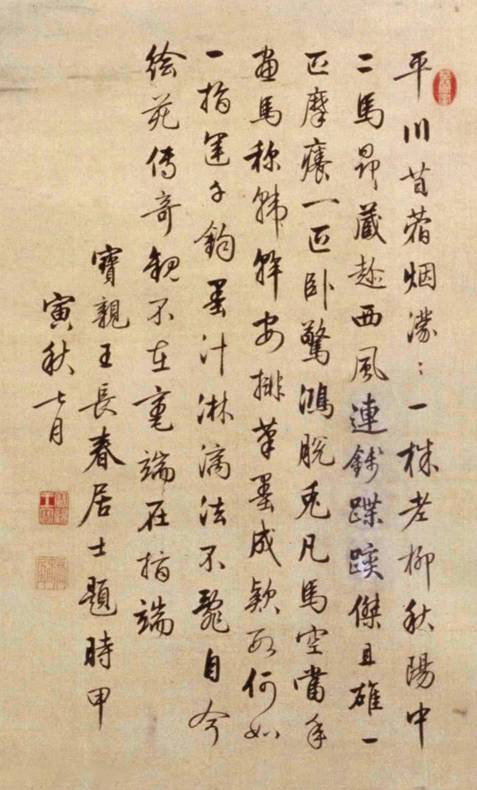 平川苜蓿烟濛〻一株老柳秋陽中
二馬昂藏趁西風連錢蹀躞傑且雄一
匹摩癢一匹卧驚鴻脫兎凡馬空當年
畫馬称韓幹安排筆墨成欵段何如
一指運千鈞墨汁淋漓法不亂自今
绘苑傳奇觀不在毫端在指端
寶親王長春居士題時甲
寅秋七月